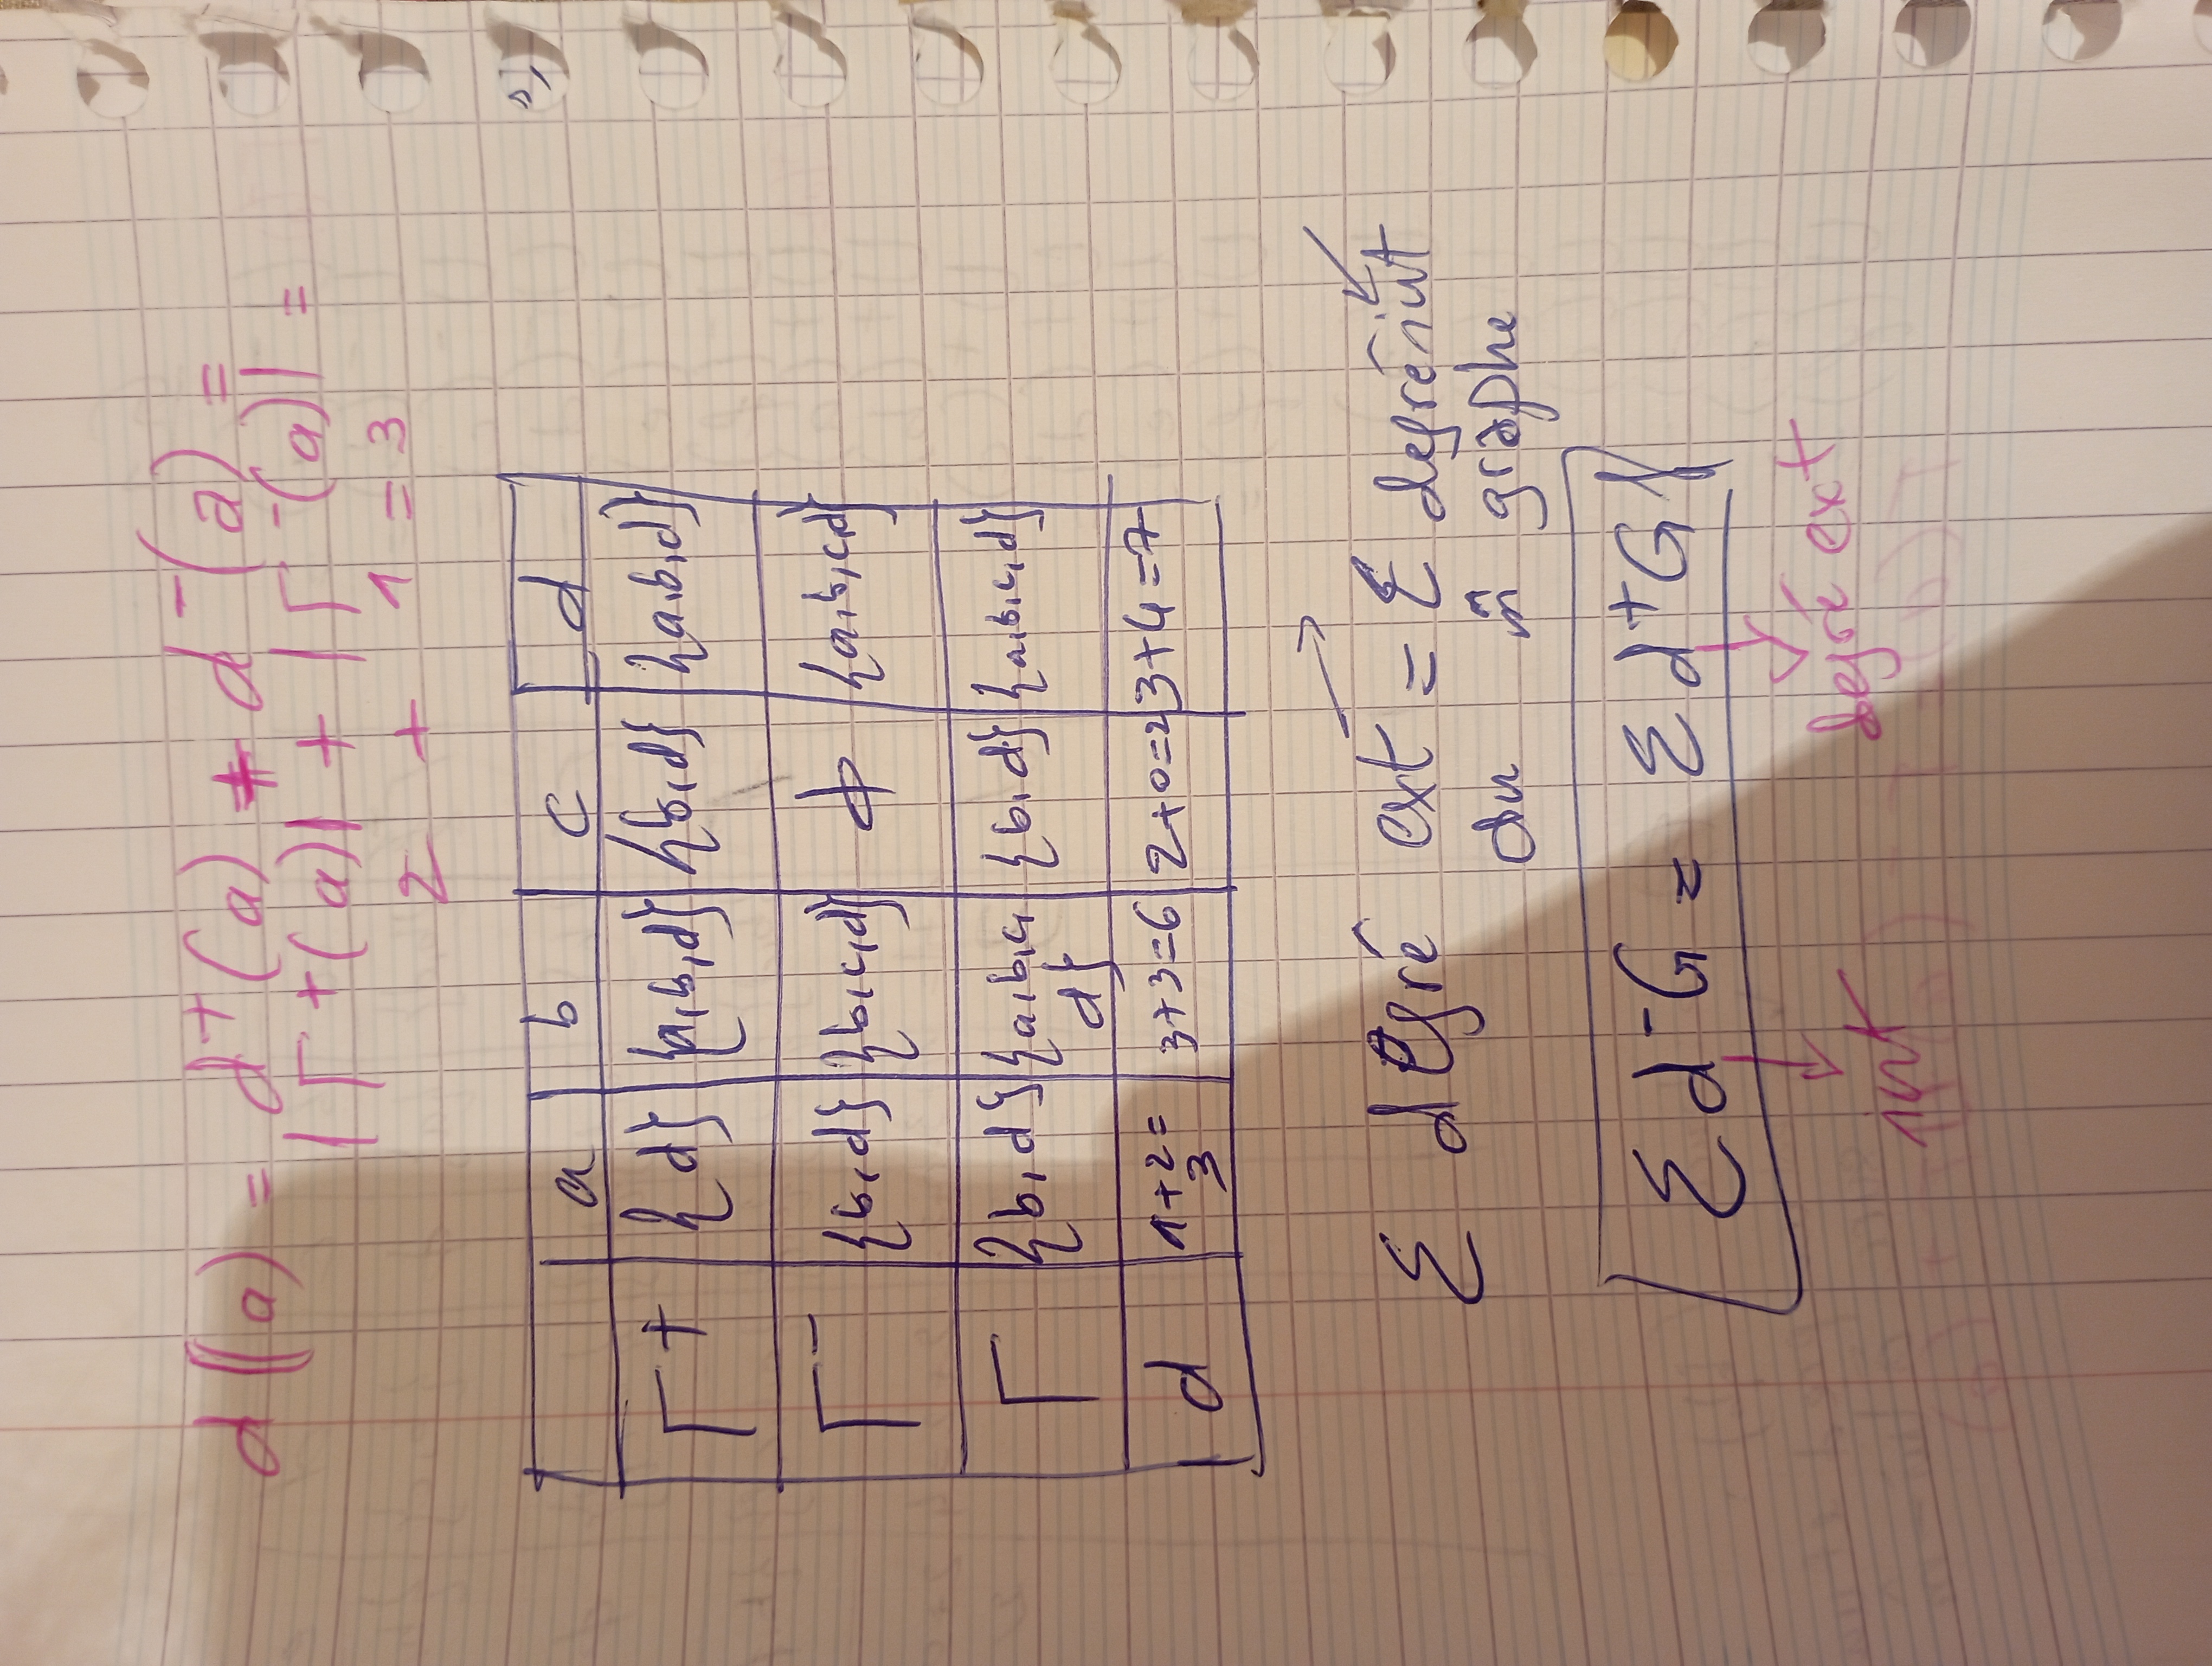 d((a) = d⁺(a) + d⁻(a) =
|Γ⁺(a)| + |Γ⁻(a)| =
2 + 1 = 3
a b c d
Γ⁺ {d} {a,b,d} {b,d} {a,b,d}
Γ⁻ {b,d} {b,c,d} ϕ {a,b,c,d}
Γ {b,d} {a,b,c, {b,d} {a,b,c,d}
d}
d 1+2= 3+3=6 2+0=2 3+4=7
3
Σ degré ext = Σ degré int
du m̂ graphe
Σ d⁻G = Σ d⁺G
int degré ext